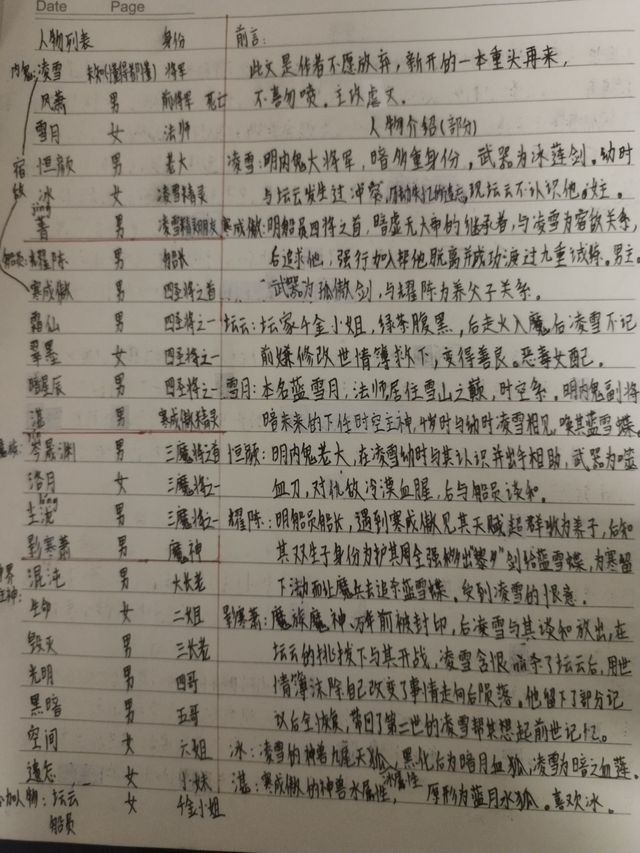 Date Page
人物列表 身份 前言：
内鬼：凌雪 未知(懂得都懂) 将军 此文是作者不愿放弃，新开的一本重头再来，
风萧 男 前将军 死亡 不喜勿喷。主攻虐文。
雪月 女 法师 人物介绍(部分)
恒颜 男 老大 凌雪：明内鬼大将军，暗多重身份，武器为冰莲剑。幼时
宿敌 冰 女 凌雪精灵 与坛云发生过冲突，现坛云不认识他。女主。
jīng
菁 男 凌雪精灵朋友 寒成傲：明船员四将之首，暗虚无大帝的继承者，与凌雪为宿敌关系，
船员：耀陈 男 船长 后追求他，强行加入帮他脱离并成功渡过九重试炼。男主。
寒成傲 男 四圣将之首 武器为孤傲剑，与耀陈为养父子关系。
霜仙 男 四圣将之一 坛云：坛家千金小姐，绿茶腹黑，后走火入魔后凌雪不记
翠墨 女 四圣将之一 前嫌修改世情簿救下，变得善良。恶毒女配。
暗星辰 男 四圣将之一 雪月：本名蓝雪月，法师居住雪山之巅，时空系。明内鬼副将
湛 男 寒成傲精灵 暗未来的下任时空主神，幼时与幼时凌雪相见，唤其蓝雪蝶。
岑晟渊 男 三魔将之首 恒颜：明内鬼老大，在凌雪幼时与其认识并出手相助，武器为噬
洛月 女 三魔将之一 血刀，对仇敌冷漠血腥，后与船员谈和。
男 三魔将之一 耀陈：明船员船长，遇到寒成傲见其天赋超群收为养子，后知
影寒萧 男 魔神 其双生子身份为护其周全强剑给蓝雪蝶，为寒留
主神：混沌 男 大长老 下劫而让魔兵去追杀蓝雪蝶。受到凌雪的恨意。
生命 女 二姐 影寒萧：魔族魔神，万年前被封印，后凌雪与其谈和放出，在
毁灭 男 三长老 坛云的挑拨下与其开战，凌雪含恨杀了坛云后，用世
光明 男 四哥 情簿抹除自己改变了事情走向后陨落。他留下了部分记
黑暗 男 五哥 忆后全恢复，带回了第二世的凌雪帮其想起前世记忆。
空间 女 六姐 冰：凌雪的神兽九尾天狐，黑化后为暗月血狐，凌雪为暗之血莲。
遗忘 女 小妹 湛：寒成傲的神兽水属性，冰属性 原形为蓝月水狐。喜欢冰。
加人物：坛云 女 千金小姐
船员